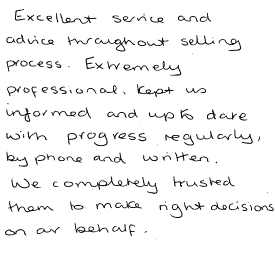 Excellent service and
advice throughout selling
process. Extremely
professional, kept us
informed and up to date
with progress regularly,
by phone and written.
We completely trusted
them to make right decisions
on our behalf.